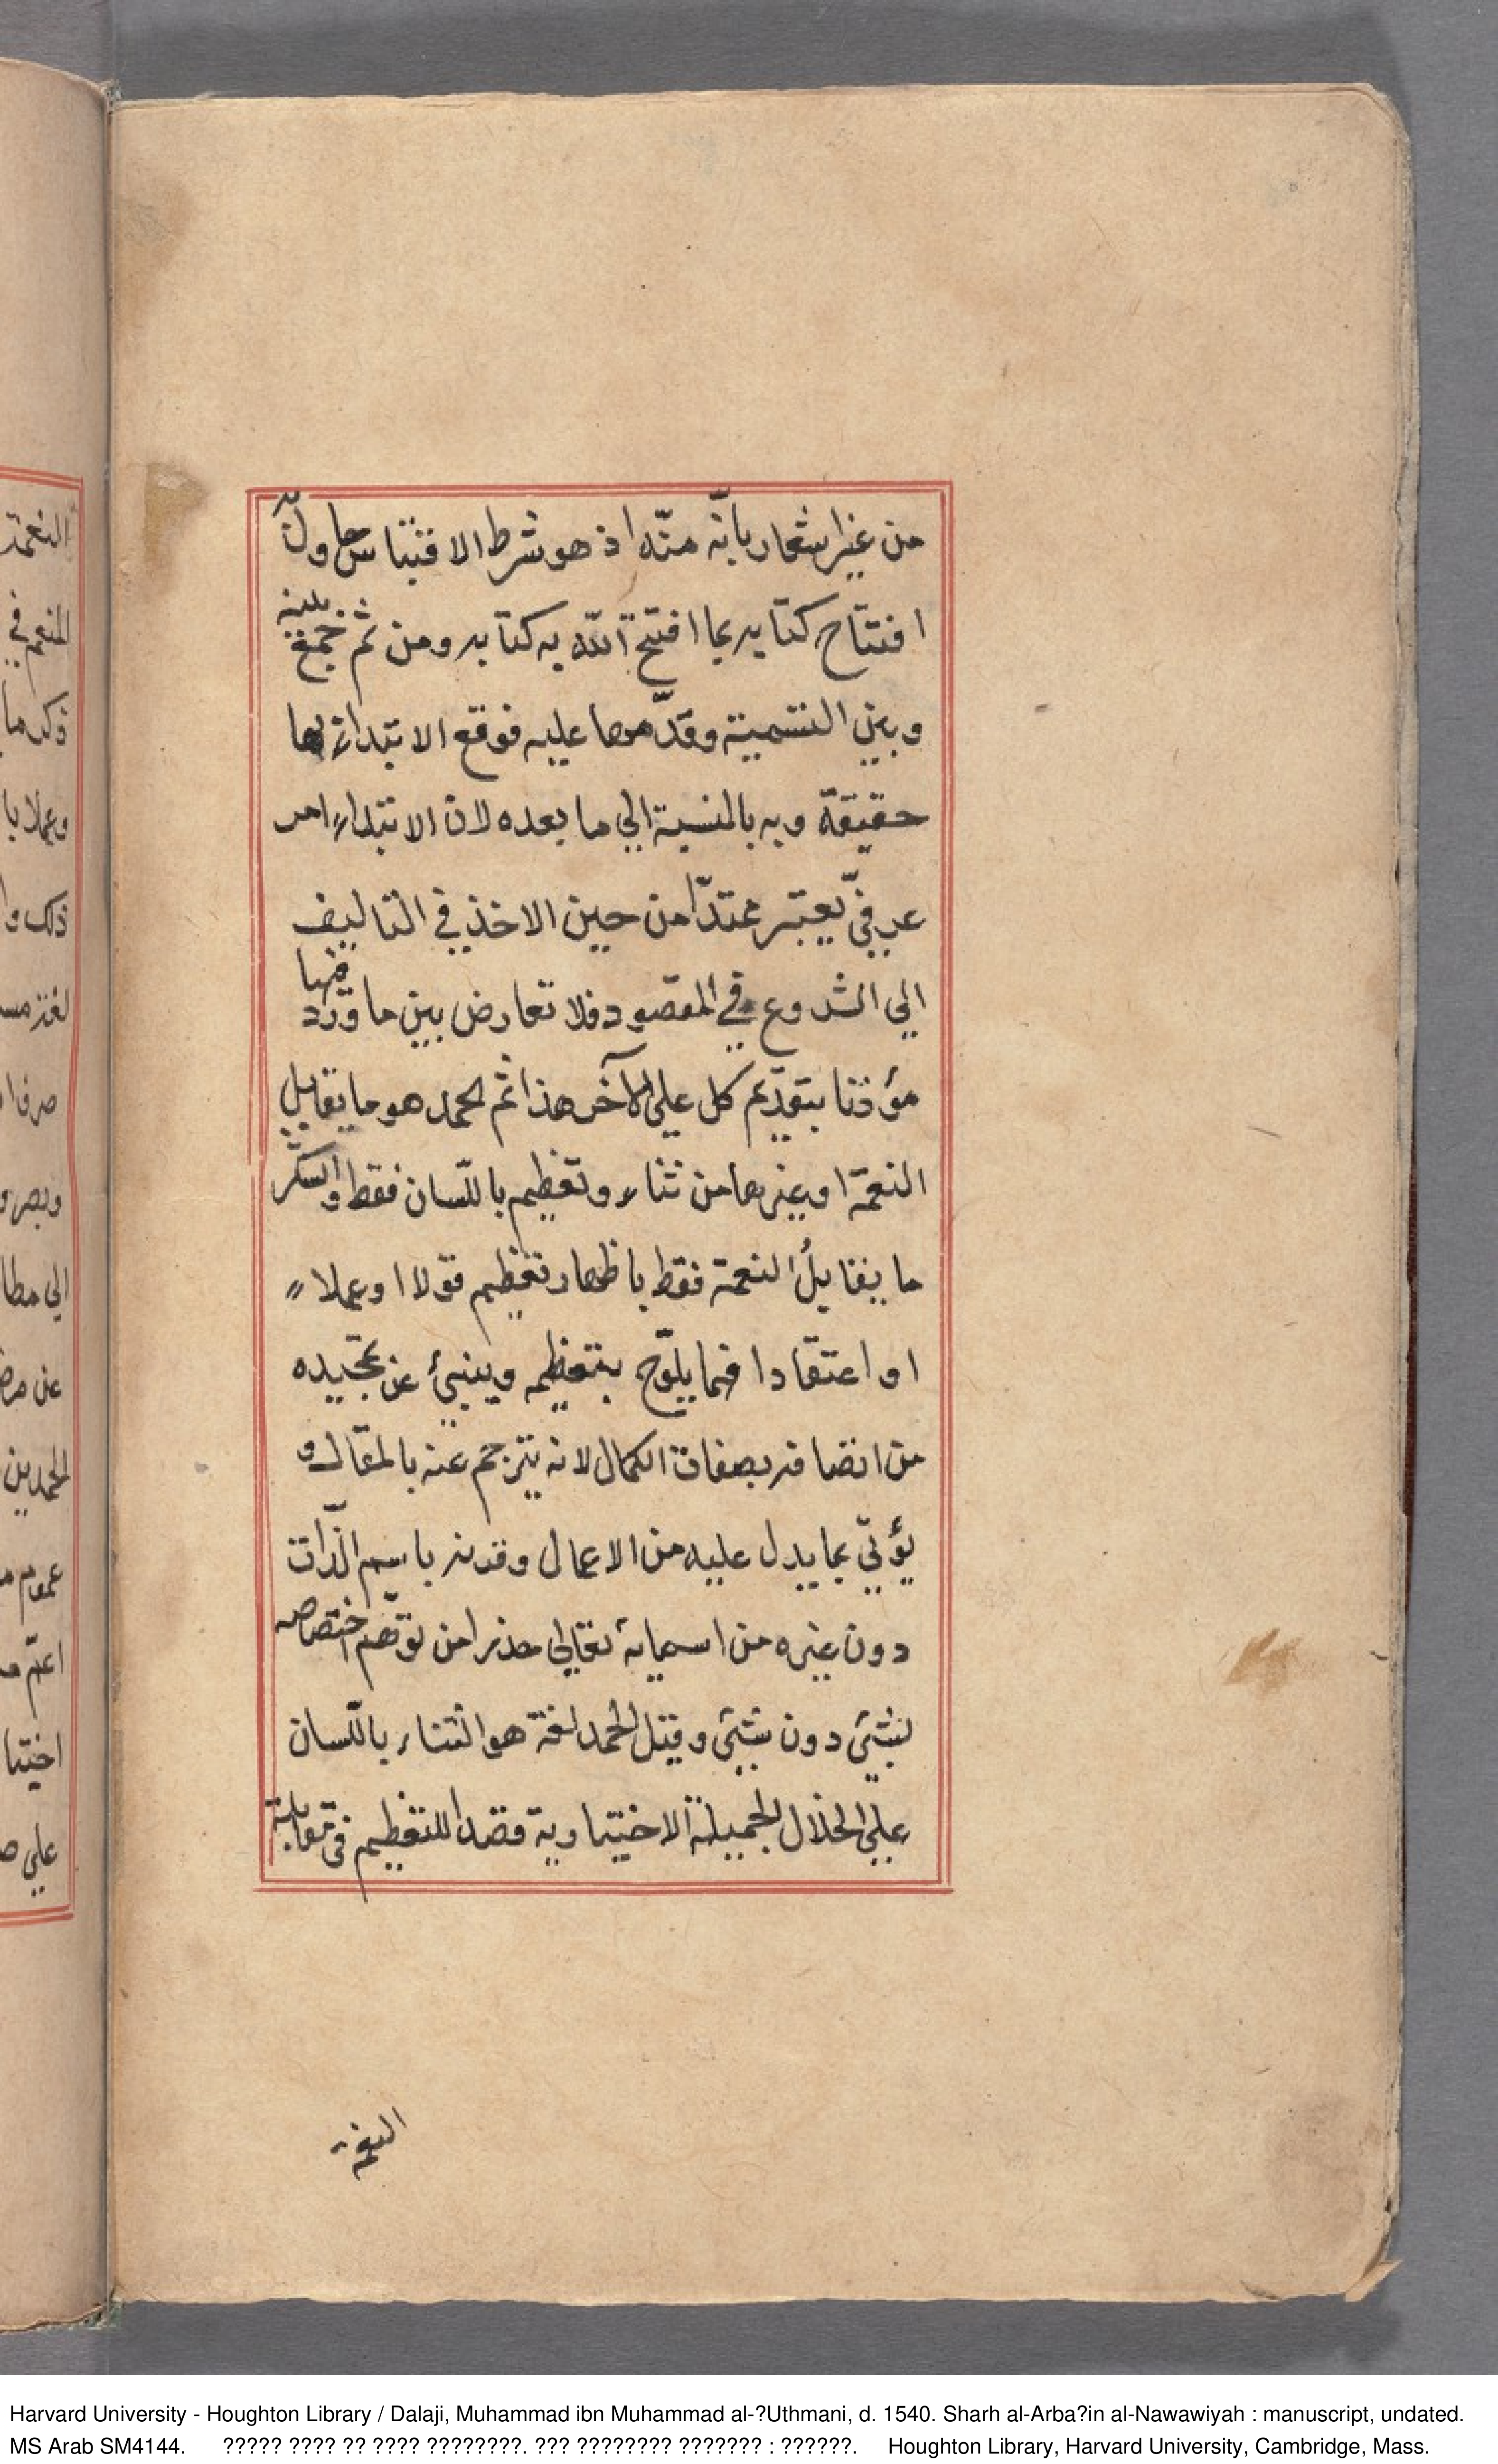 من غير اشعار بانّه منّه اذ هو شرط الاقتباس حاول
افتتاح كتابه بما افتتح اللّه به كتابه ومن ثم جمع بينه
وبين التسمية وقدّمها عليه فوقع الابتداء بها
حقيقة وبه بالنسبة الي ما بعده لان الابتداء امر
عرفيّ يعتبر ممتدّا من حين الاخذ في التاليف
الي الشروع في المقصود فلا تعارض بين ما ورد فيها
مؤذنا بتقديم كل علي الآخر هذا ثم الحمد هو ما يقابل
النعمة او غيرها من ثناء وتعظيم باللّسان فقط والشكر
ما يقابلُ النعمة فقط باظهار تعظيم قولا او عملا
او اعتقادا فما يلوّح بتعظيمه وينبئ عن تمجيده
من اتصافه بصفات الكمال لانه يترجم عنه بالمقال و
يؤتي بما يدل عليه من الاعمال وقرنه باسم الذّات
دون غيره من اسمايه تعالي حذرا من توهّم اختصاصه
لشئ دون شئ وقيل الحمد لغة هو الثناء باللّسان
علي الخلال الجميلة الاختيارية قصدا للتعظيم في مقابلة
النعمة
النعمة
المنعم في
ذكر ما
وعملا با
ذلك وا
صرف ا
وبصر و
الي مطا
الحمدين
عموم م
اعمّ م
اختيا
علي ص
Harvard University - Houghton Library / Dalaji, Muhammad ibn Muhammad al-?Uthmani, d. 1540. Sharh al-Arba?in al-Nawawiyah : manuscript, undated.
MS Arab SM4144. ????? ???? ?? ???? ????????. ??? ???????? ??????? : ??????. Houghton Library, Harvard University, Cambridge, Mass.